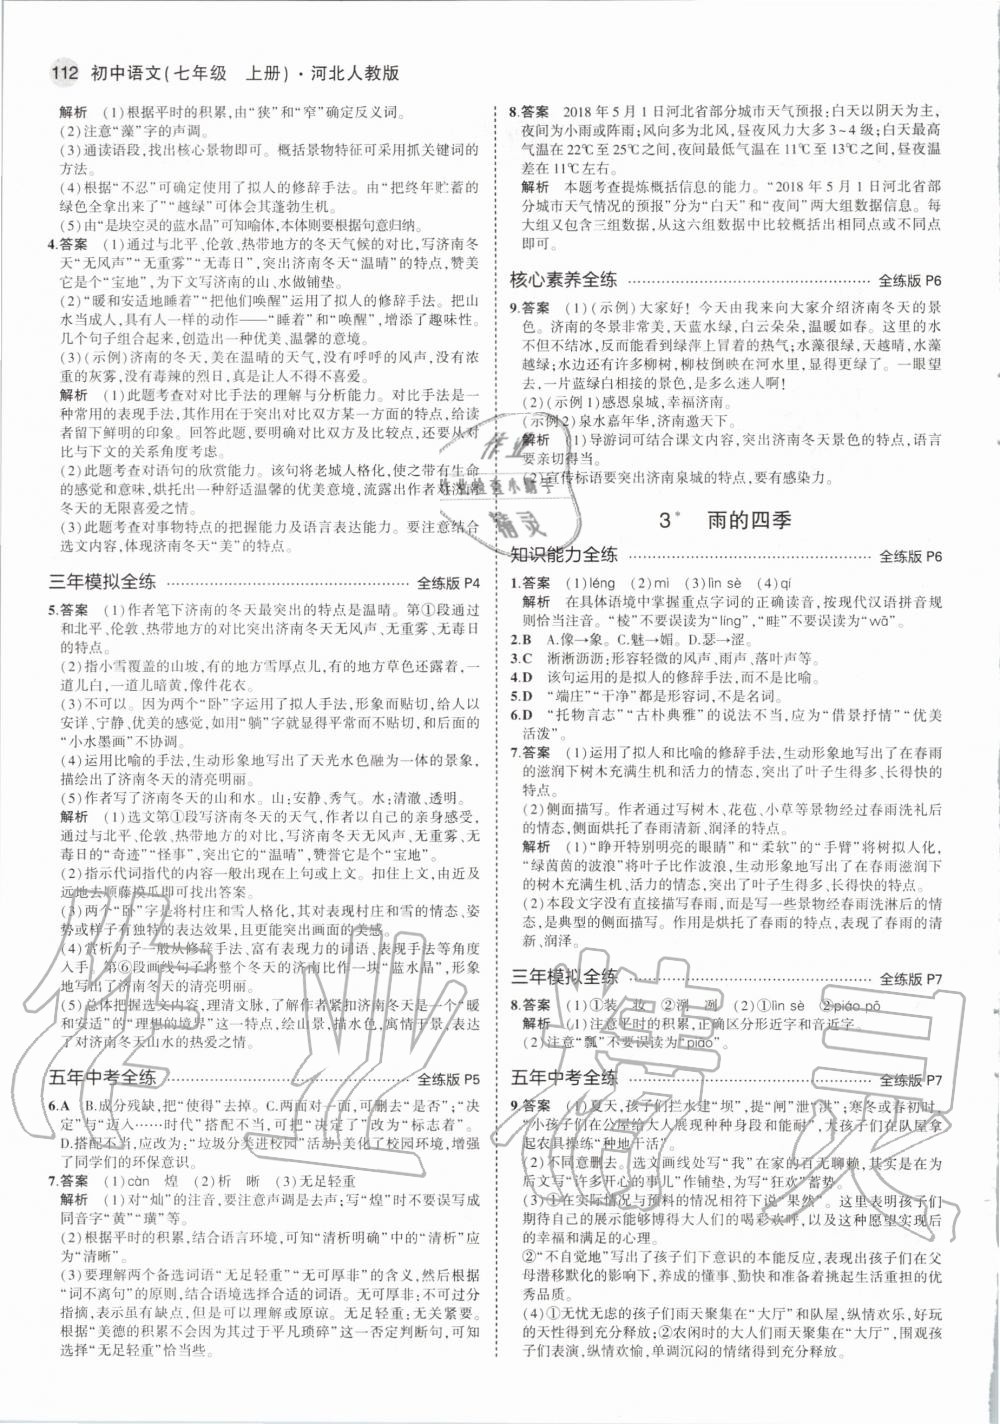 112 初中语文(七年级 上册)·河北人教版
解析 (1)根据平时的积累,由“狭”和“窄”确定反义词。
(2)注意“藻”字的声调。
(3)通读语段,找出核心景物即可。概括景物特征可采用抓关键词的方法。
(4)根据“不忍”可确定使用了拟人的修辞手法。由“把终年贮蓄的绿色全拿出来了”“越绿”可体会其蓬勃生机。
(5)由“是块空灵的蓝水晶”可知喻体,本体则要根据句意归纳。
4.答案 (1)通过与北平、伦敦、热带地方的冬天气候的对比,写济南冬天“无风声”“无重雾”“无毒日”,突出济南冬天“温晴”的特点,赞美它是个“宝地”,为下文写济南的山、水做铺垫。
(2)“暖和安适地睡着”“把他们唤醒”运用了拟人的修辞手法。把山水当成人,具有人的动作——“睡着”和“唤醒”,增添了趣味性。几个句子组合起来,创造出一种优美、温馨的意境。
(3)(示例)济南的冬天,美在温晴的天气,没有呼呼的风声,没有浓重的灰雾,没有毒辣的烈日,真是让人不得不喜爱。
解析 (1)此题考查对对比手法的理解与分析能力。对比手法是一种常用的表现手法,其作用在于突出对比双方某一方面的特点,给读者留下鲜明的印象。回答此题,要明确对比双方及比较点,还要从对比与下文的关系角度考虑。
(2)此题考查对语句的欣赏能力。该句将老城人格化,使之带有生命的感觉和意味,烘托出一种舒适温馨的优美意境,流露出作者对济南冬天的无限喜爱之情。
(3)此题考查对事物特点的把握能力及语言表达能力。要注意结合选文内容,体现济南冬天“美”的特点。
三年模拟全练 全练版 P4
5.答案 (1)作者笔下济南的冬天最突出的特点是温晴。第①段通过和北平、伦敦、热带地方的对比突出济南冬天无风声、无重雾、无毒日的特点。
(2)指小雪覆盖的山坡,有的地方雪厚点儿,有的地方草色还露着,一道儿白,一道儿暗黄,像件花衣。
(3)不可以。因为两个“卧”字运用了拟人手法,形象而贴切,给人以安详、宁静、优美的感觉,如用“躺”字就显得平常而不贴切,和后面的“小水墨画”不协调。
(4)运用比喻的修辞手法,生动形象地写出了天光水色融为一体的景象,描绘出了济南冬天的清亮明丽。
(5)作者写了济南冬天的山和水。山:安静、秀气。水:清澈、透明。
解析 (1)选文第①段写济南冬天的天气,作者以自己的亲身感受,通过与北平、伦敦、热带地方的对比,写出了济南冬天无风声、无重雾、无毒日的“奇迹”“怪事”,突出了它的“温晴”,赞誉它是个“宝地”。
(2)指示代词指代的内容一般出现在上句或上文。扣住上文,由近及远地去顺藤摸瓜即可找出答案。
(3)两个“卧”字是将村庄和雪人格化,其对表现村庄和雪的情态、姿势或样子有独特的表达效果,且更能突出画面的美感。
(4)赏析句子一般从修辞手法、富有表现力的词语、表现手法等角度入手。第⑥段画线句子将整个冬天的济南比作一块“蓝水晶”,形象地写出了济南冬天的清亮明丽。
(5)总体把握选文内容,理清文脉,了解作者紧扣济南冬天是一个“暖和安适”的“理想的境界”这一特点,绘山景,描水色,寓情于景,表达了对济南冬天山水的热爱之情。
五年中考全练 全练版 P5
6.A B.成分残缺,把“使得”去掉。C.两面对一面,可删去“是否”;“决定”与“迈入……时代”搭配不当,可将“决定了”改为“标志着”。D.搭配不当,应改为:“垃圾分类进校园”活动,美化了校园环境,增强了同学们的环保意识。
7.答案 (1)càn 煌 (2)析 晰 (3)无足轻重
解析 (1)对“灿”的注音,要注意声调是去声;写“煌”时不要误写成同音字“黄”“璜”等。
(2)根据平时的积累,结合语言环境,可知“清析明确”中的“清析”应为“清晰”。
(3)要理解两个备选词语“无足轻重”“无可厚非”的含义,然后根据“词不离句”的原则,结合语境选择合适的词语。无可厚非:不可过分指摘,表示虽有缺点,但可以理解或原谅。无足轻重:无关紧要。根据“美德的积累不会因为过于平凡琐碎”这一内容进行判断,可知选择“无足轻重”恰当些。
8.答案 2018年5月1日河北省部分城市天气预报:白天以阴天为主,夜间为小雨或阵雨;风向多为北风,昼夜风力大多3~4级;白天最高气温在22℃至25℃之间,夜间最低气温在11℃至13℃之间,昼夜温差在11℃左右。
解析 本题考查提炼概括信息的能力。“2018年5月1日河北省部分城市天气情况的预报”分为“白天”和“夜间”两大组数据信息。每大组又包含三组数据,从这六组数据中比较概括出相同点或不同点即可。
核心素养全练 全练版 P6
9.答案 (1)(示例)大家好!今天由我来向大家介绍济南冬天的景色。济南的冬景非常美,天蓝水绿,白云朵朵,温暖如春。这里的水不但不结冰,反而能看到绿萍上冒着的热气;水藻很绿,天越晴,水藻越绿;水边还有许多柳树,柳枝倒映在河水里,显得很长。一眼望去,一片蓝绿白相接的景色,是多么迷人啊!
(2)(示例1)感恩泉城,幸福济南。
(示例2)泉水嘉年华,济南邀天下。
解析 (1)导游词可结合课文内容,突出济南冬天景色的特点,语言要亲切得当。
(2)宣传标语要突出济南泉城的特点,要有感染力。
3* 雨的四季
知识能力全练 全练版 P6
1.答案 (1)léng (2)mì (3)lìn sè (4)qí
解析 在具体语境中掌握重点字词的正确读音,按现代汉语拼音规则恰当注音。“棱”不要误读为“líng”,“畦”不要误读为“wā”。
2.B A.像→象。C.魅→媚。D.瑟→涩。
3.C 淅淅沥沥:形容轻微的风声、雨声、落叶声等。
4.D 该句运用的是拟人的修辞手法,而不是比喻。
5.D “端庄”“干净”都是形容词,不是名词。
6.D “托物言志”“古朴典雅”的说法不当,应为“借景抒情”“优美活泼”。
7.答案 (1)运用了拟人和比喻的修辞手法,生动形象地写出了在春雨的滋润下树木充满生机和活力的情态,突出了叶子生得多、长得快的特点。
(2)侧面描写。作者通过写树木、花苞、小草等景物经过春雨洗礼后的情态,侧面烘托了春雨清新、润泽的特点。
解析 (1)“睁开特别明亮的眼睛”和“柔软”的“手臂”将树拟人化,“绿茵茵的波浪”将叶子比作波浪,生动形象地写出了在春雨滋润下的树木充满生机、活力的情态,突出了叶子生得多、长得快的特点。
(2)本段文字没有直接描写春雨,而是写一些景物经春雨洗淋后的情态,是典型的侧面描写。作用是烘托了春雨的特点,表现了春雨的清新、润泽。
三年模拟全练 全练版 P7
8.答案 (1)①装 妆 ②洌 冽 (2)①lìn sè ②piáo pō
解析 (1)注意平时的积累,正确区分形近字和音近字。
(2)注意“瓢”不要误读为“piāo”。
五年中考全练 全练版 P7
9.答案 (1)夏天,孩子们拦水建“坝”,提“闸”泄“洪”;寒冬或春初时,“小孩子们在公屋给大人展现种种身段和能耐”,大人们在队屋拿起农具操练“种地干活”。
(2)不同意删去。选文画线处写“我”在家的百无聊赖,其实这是为后文写“许多开心的事儿”作铺垫,为写“狂欢”蓄势。
(3)①在实际情况与预料的情况相符下说“果然”。这里表明孩子们期待自己的展示能够博得大人们的喝彩欢呼,以及这种愿望实现后的幸福和满足的心理。
②“不自觉地”写出了孩子们下意识的本能反应,表现出孩子们在父母潜移默化的影响下,养成的懂事、勤快和准备着挑起生活重担的优秀品质。
(4)①无忧无虑的孩子们雨天聚集在“大厅”和队屋,纵情欢乐,好玩的天性得到充分释放;②农闲时的大人们雨天聚集在“大厅”,围观孩子们表演,纵情欢愉,单调沉闷的情绪得到充分释放。